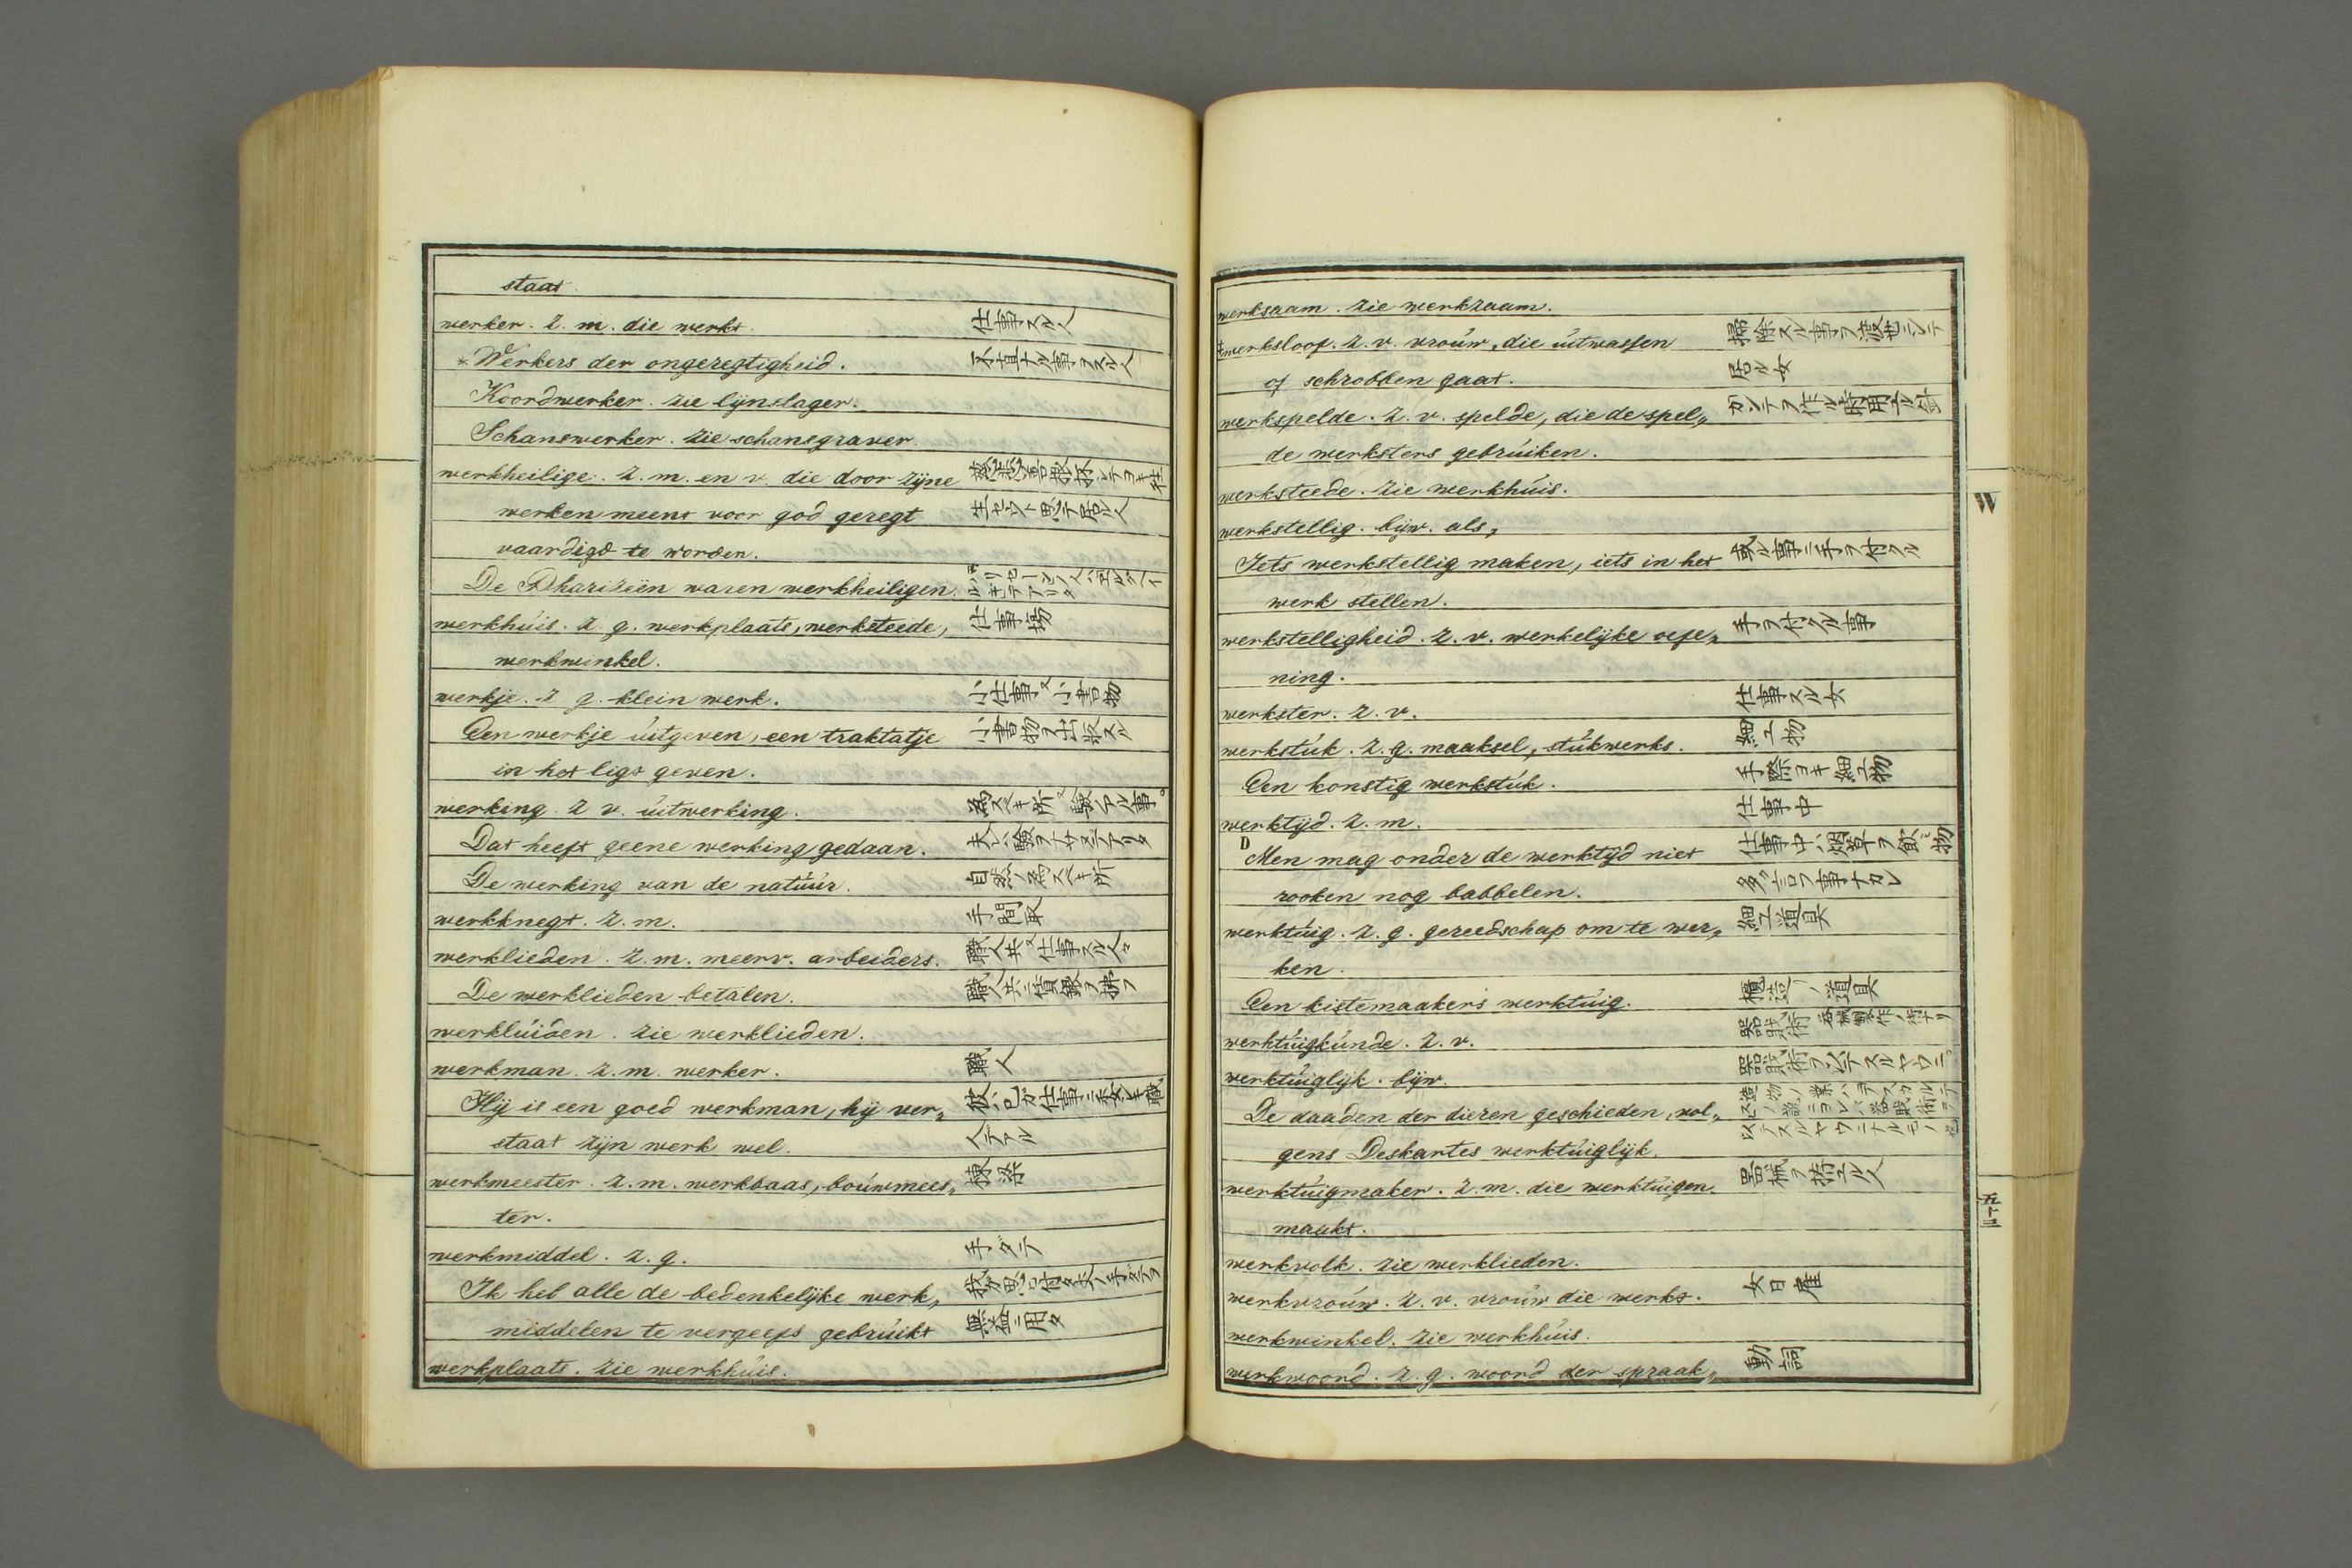 staat
werker. z. m. die werkt. 仕事スル人
*Werkers der ongeregtigheid. 不直ナル事ヲスル人
Koordwerker. zie lijnslager.
Schanswerker. zie schansgraver
werkheilige. z. m. en v. die door zijne
werken meent voor god geregt
vaardigd te worden.
De Pharizeën waren werkheiligen.
werkhúis. z. g. werkplaats, werksteede, 仕事場
werkwinkel.
werkje. z g. klein werk. 小仕事又小書物
Een werkje úitgeven, een traktatje 小書物ヲ出版スル
in het ligt geven.
werking. z v. úitwerking.
Dat heeft geene werking gedaan.
De werking van de natúúr. 自然ノ為スベキ所
werkknegt. z. m. 手間取
werklieden. z. m. meerv. arbeiders. 職人共又仕事スル人
De werklieden betalen. 職人共ニ賃銀ヲ拂フ
werklúiden. zie werklieden.
werkman. z. m. werker. 職人
Hij is een goed werkman, hij ver„ 彼ハ己ガ仕事ニ委キ職
staat zijn werk wel. 人デアル
werkmeester. z. m. werkbaas, boúwmees„ 棟梁
ter.
werkmiddel. z. g. 手ダテ
Ik heb alle de bedenkelijke werk„
middelen te vergeefs gebrúikt 無益ニ用タ
werkplaats. zie werkhúis.
werksaam. zie werkzaam.
werksloof. z. v. vroúw, die úitwassen 掃除スル事ヲ渡世ニシテ
of schrobben gaat. 居ル女
werkspelde. z. v. spelde, die de spel„
de werksters gebrúiken.
werksteede. zie werkhúis.
werkstellig. bijw. als,
Iets werkstellig maken, iets in het 或ル事ニ手ヲ付クル
werk stellen.
werkstelligheid. z. v. werkelijke oefe„ 手ヲ付クル事
ning.
werkster. z. v. 仕事スル女
werkstúk. z. g. maaksel, stúkwerks. 細工物
Een konstig werkstúk. 手際ヨキ細工物
werktijd. z. m. 仕事中
D Men mag onder de werktijd niet 仕事中ハ烟草ヲ飲ミ物
rooken nog babbelen. 多ク言フ事ナカレ
werktúig. z. g. gereedschap om te wer„ 細工道具
ken.
Een kistemaakers werktúig. 櫃造リノ道具
werktúigkúnde. z. v. 器械術
werktúiglijk. bijw.
De daaden der dieren geschieden, vol„
gens Deskartes werktúiglijk.
werktúigmaker. z. m. die werktúigen 器械ヲ拵エル人
maakt.
werkvolk. zie werklieden.
werkvroúw. z. v. vroúw die werkt. 女日雇
werkwinkel. zie werkhúis.
werkwoord. z. g. woord der spraak„ 動詞
W